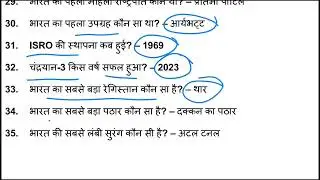 29. भारत की पहली महिला राष्ट्रपति कौन थीं? – प्रतिभा पाटिल
30. भारत का पहला उपग्रह कौन सा था? – आर्यभट्ट
31. ISRO की स्थापना कब हुई? – 1969
32. चंद्रयान-3 किस वर्ष सफल हुआ? – 2023
33. भारत का सबसे बड़ा रेगिस्तान कौन सा है? – थार
34. भारत का सबसे बड़ा पठार कौन सा है? – दक्कन का पठार
35. भारत की सबसे लंबी सुरंग कौन सी है? – अटल टनल